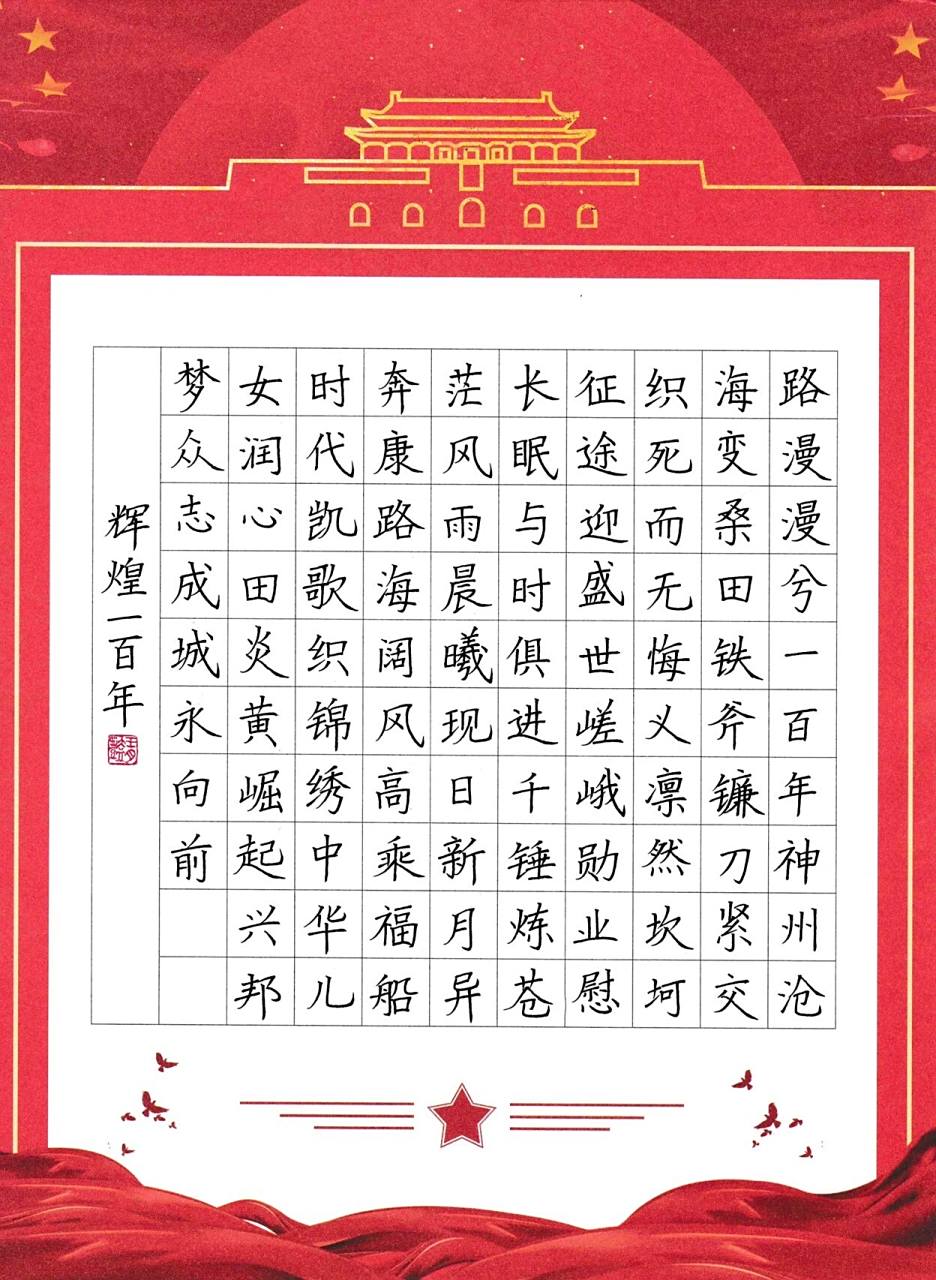 路漫漫兮一百年神州沧
海变桑田铁斧镰刀紧交
织死而无悔义凛然坎坷
征途迎盛世嵯峨勋业慰
长眠与时俱进千锤炼苍
茫风雨晨曦现日新月异
奔康路海阔风高乘福船
时代凯歌织锦绣中华儿
女润心田炎黄崛起兴邦
梦众志成城永向前
辉煌一百年